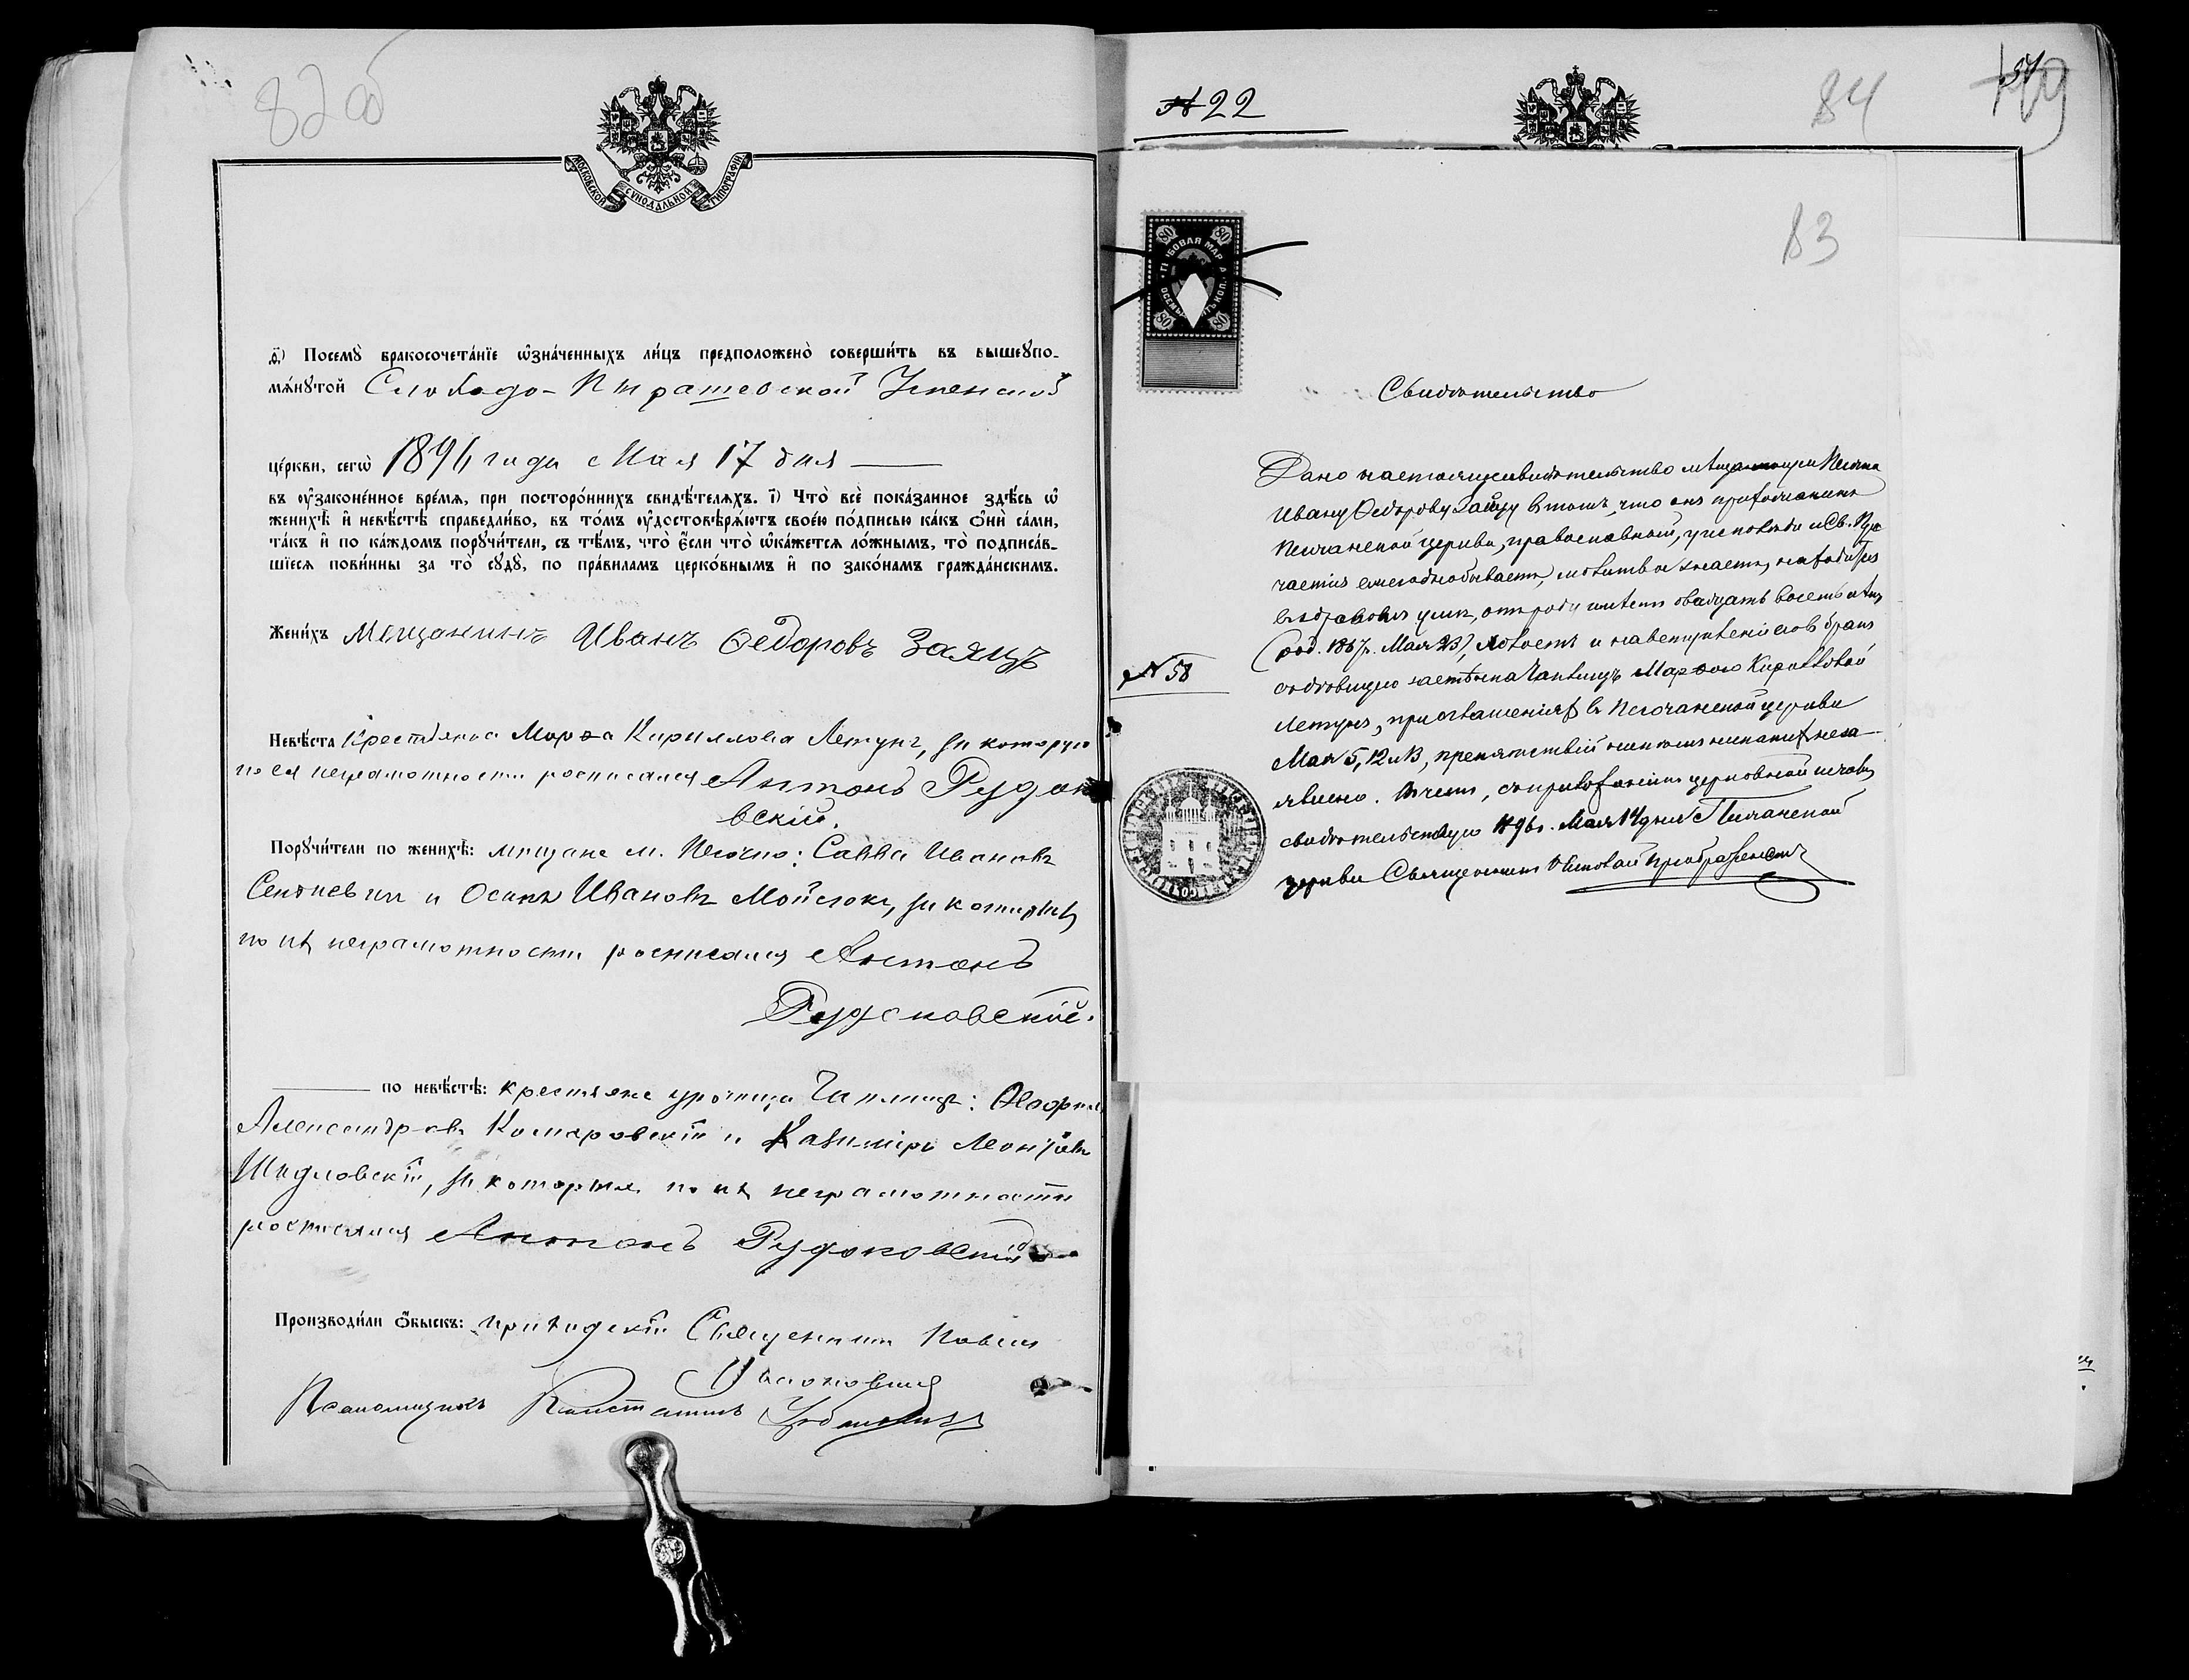 82 об
МОСКОВСКОЙ СѴНОДАЛЬНОЙ ТИПОГРАФІИ
д҃і) Посемꙋ̀ бракосочета́нїе ѡ҆зна́ченныхъ ли́цъ предположено̀ соверши́ть въ вышеꙋпо-
мѧ́нꙋтой Слободо-Пырашевской Успенской
це́ркви, сегѡ̀ 1896 года Мая 17 дня
въ ᲂу҆законе́нное вре́мѧ, при посторо́ннихъ свидѣ́телѧхъ. і҃) Что̀ всѐ пока́занное здѣ́сь ѡ҆
женихѣ̀ и҆ невѣ́стѣ справедли́во, въ то́мъ ᲂу҆достовѣрѧ́ютъ свое́ю по́дписью ка́къ ѻ҆нѝ са́ми,
та́къ и҆ по ка́ждомъ порꙋчи́тели, съ тѣ́мъ, что̀ є҆́сли что̀ ѡ҆ка́жетсѧ ло́жнымъ, то̀ подписа́в-
шїесѧ пови́нны за то̀ сꙋдꙋ̀, по пра́виламъ церко́внымъ и҆ по зако́намъ гражда́нскимъ.
Жени́хъ Мещанинъ Иванъ Ѳедоровъ Заяцъ
Невѣ́ста Крестьянка Марѳа Кириллова Летунъ, за которую
по ея неграмотности росписался Антонъ Рудак
вскій.
Порꙋчи́тели по женихѣ̀: мещане м. Песочно: Савва Ивановъ
и Осипъ Ивановъ за которыхъ
по ихъ неграмотности росписался Антонъ
Рудаковскій.
по невѣ́стѣ: крестьяне урочища Чаплицъ:
Александровъ Комаровскій и Казиміръ Леонтьевъ
Шидловскій, за которыхъ по ихъ неграмотности
росписался Антонъ Рудаковскій
Производи́ли ѻ҆́быскъ: приходскій Священникъ Павелъ
Псаломщикъ Константинъ
№ 22
84
83
80 80
ГЕРБОВАЯ МАРКА
80 80
Свидѣтельство
Дано настоящее свидѣтельство мѣщанину м. Песочна
Ивану Ѳедорову Зайцу въ томъ, что онъ прихожанинъ
Песочанской церкви, православный, у исповѣди и Св. При-
частія ежегодно бываетъ, молитвы знаетъ, находится
въ здравомъ умѣ, отъ роду имѣетъ двадцать восемь лѣтъ
(род. 1867 г. Мая 23), холостъ и на вступленіе въ бракъ
съ дѣвицею застѣнка Чаплицъ Марѳою Кирилловой
Летунъ, при оглашеніяхъ въ Песочанской церкви
Мая 5, 12 и 13, препятствій никѣмъ никакихъ не за-
явлено. Въ чемъ, съ приложеніемъ церковной печати,
свидѣтельствую 1896 г. Мая 14 дня Песочанской
церкви Священникъ Преображенскій
№ 58